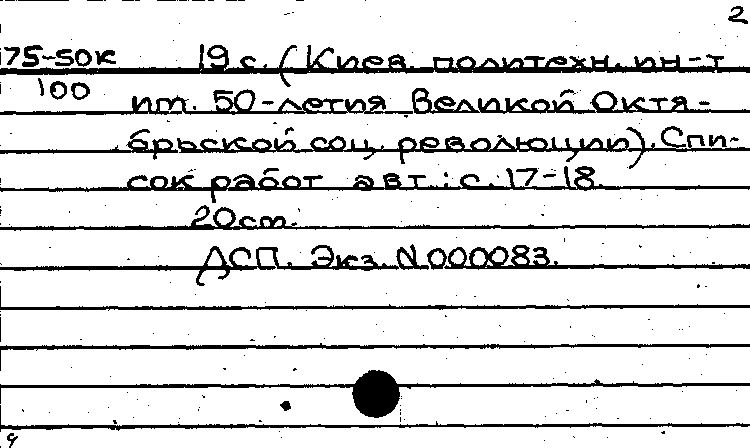 2
75-50к 19 с. (Киев. политехн. ин-т
100 им. 50-летия Великой Октя-
брьской соц. революции). Спи-
сок работ авт.: с. 17-18.
20 см.
ДСП. Экз. N 000083.
9